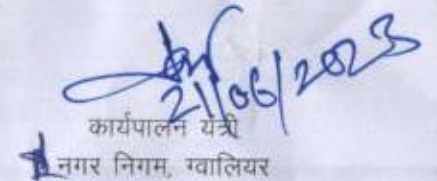 21/06/2023
कार्यपालन यंत्री
नगर निगम, ग्वालियर